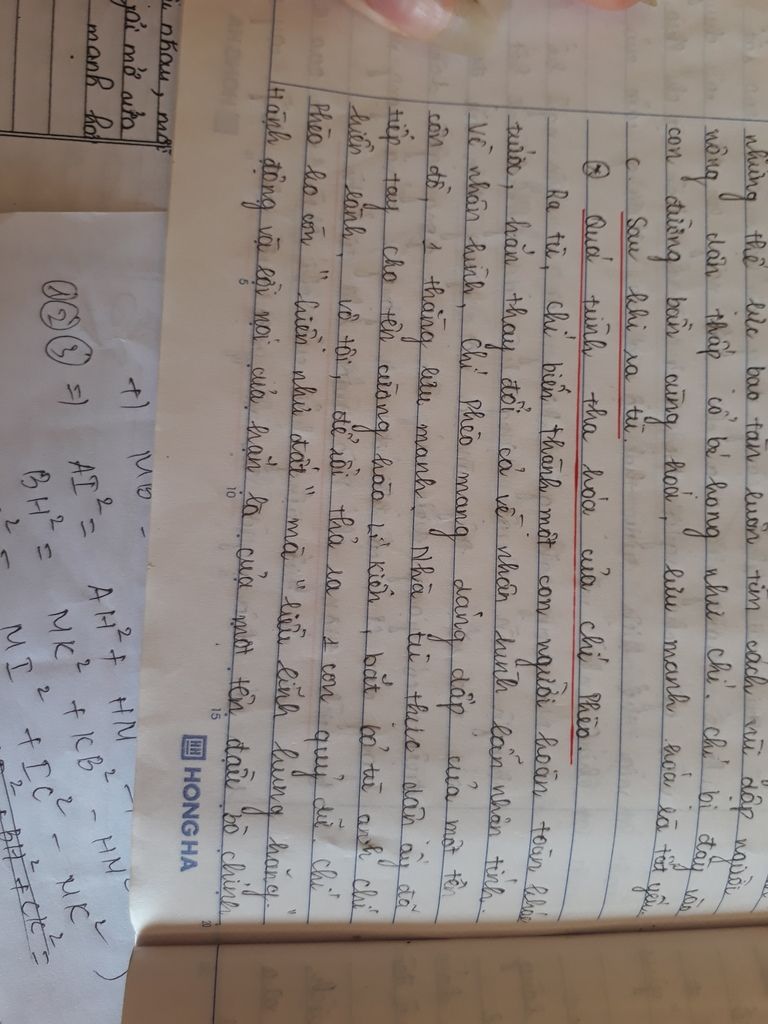 những thế lực bạo tàn luôn tìm cách vùi dập người
nông dân thấp cổ bé họng như chí. chí bị đẩy vào
con đường bần cùng hoá, lưu manh hoá là tất yếu.
c. Sau khi ra tù.
* Quá trình tha hóa của chí Phèo.
Ra tù, chí biến thành một con người hoàn toàn khác
trước, hắn thay đổi cả về nhân hình lẫn nhân tính.
Về nhân hình, Chí Phèo mang dáng dấp của một tên
côn đồ, 1 thằng lưu manh. Nhà tù thực dân ấy đã
tiếp tay cho tên cường hào Lí Kiến, bắt bỏ tù anh chí
hiền lành, vô tội, để rồi thả ra 1 con quỷ dữ. chí
Phèo ko còn "hiền như đất" mà "liều lĩnh hung hăng"
Hành động và lời nói của hắn là của một tên đầu bò chính
5 10 15 20
HONG HA
nhau, mỗi
mở
manh
+)
①②③ =)
AI² = AH² + HN
BH² = NK² + KB² - HN²
MI² + IC² - NK²